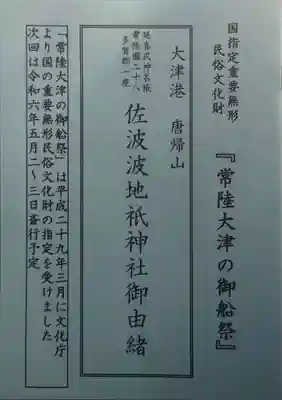 国指定重要無形
民俗文化財
『常陸大津の御船祭』
大津港 唐帰山
延喜式神名帳
常陸國二十八
多賀郡一座
佐波波地祇神社御由緒
「常陸大津の御船祭」は平成二十九年三月に文化庁
より国の重要無形民俗文化財の指定を受けました
次回は令和六年五月二～三日斎行予定